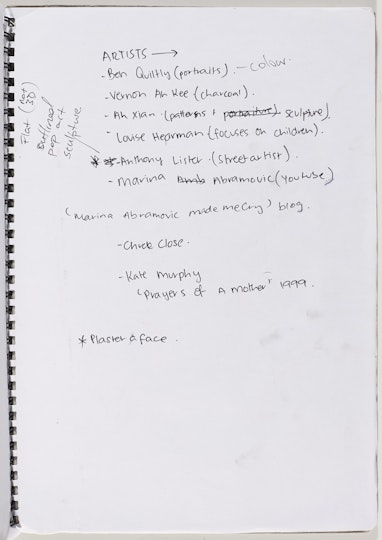 ARTISTS →
- Ben Quilty (portraits). - colour.
- Vernon Ah Kee (charcoal).
- Ah Xian (patterns + portraiture) sculpture)
- Louise Hearman (focuses on children).
* * - Anthony Lister. (street artist).
- Marina Abramovic (youtube)
('Marina Abramovic made me cry') blog.
- Chuck Close.
- Kate Murphy
'Prayers of A mother' 1999.
* Plaster a face.
Flat (not 3D)
Outlined
pop art
sculpture